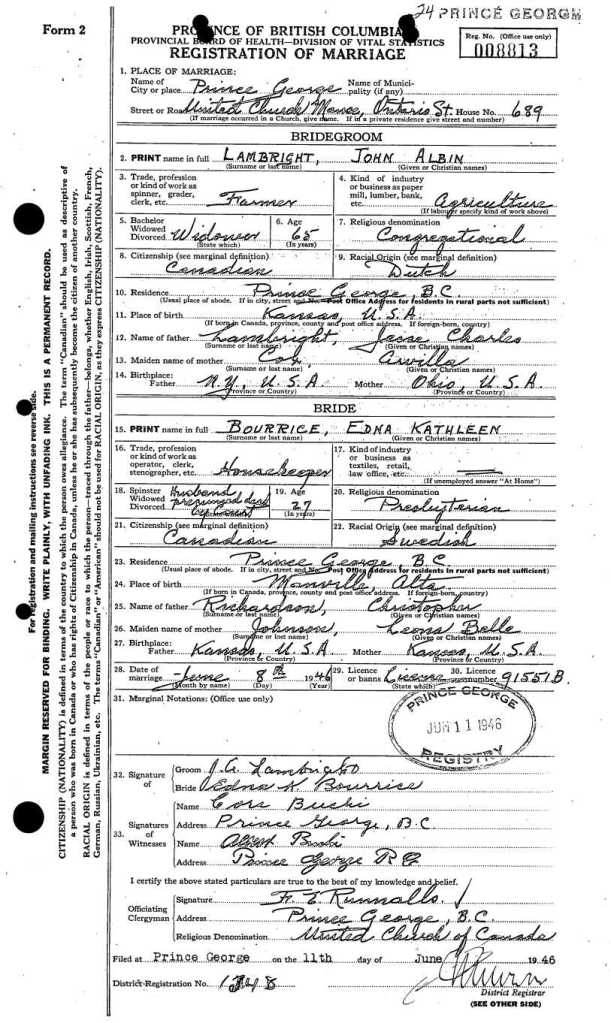 24 PRINCE GEORGE
Form 2
PROVINCE OF BRITISH COLUMBIA
PROVINCIAL BOARD OF HEALTH—DIVISION OF VITAL STATISTICS
REGISTRATION OF MARRIAGE
Reg. No. (Office use only)
008813
1. PLACE OF MARRIAGE:
Name of City or place Prince George Name of Municipality (if any)
Street or Road United Church Manse, Ontario St. House No. 689
(If marriage occurred in a Church, give name. If in a private residence give street and number)
BRIDEGROOM
2. PRINT name in full LAMBRIGHT, JOHN ALBIN
(Surname or last name) (Given or Christian names)
3. Trade, profession or kind of work as spinner, grader, clerk, etc. Farmer
4. Kind of industry or business as paper mill, lumber, bank, etc. Agriculture
(If labourer specify kind of work above)
5. Bachelor Widowed Divorced Widower
(State which)
6. Age 65
(In years)
7. Religious denomination
Congregational
8. Citizenship (see marginal definition)
Canadian
9. Racial Origin (see marginal definition)
Dutch
10. Residence Prince George, B.C.
(Usual place of abode. If in city, street and No. Post Office Address for residents in rural parts not sufficient)
11. Place of birth Kansas, U.S.A.
(If born in Canada, province, county and post office address. If foreign-born, country)
12. Name of father Lambright, Charles
(Surname or last name) (Given or Christian names)
13. Maiden name of mother Cox, Awilla
(Surname or last name) (Given or Christian names)
14. Birthplace: Father N.Y., U.S.A. Mother Ohio, U.S.A.
(Province or Country) (Province or Country)
BRIDE
15. PRINT name in full BOURRICE, EDNA KATHLEEN
(Surname or last name) (Given or Christian names)
16. Trade, profession or kind of work as operator, clerk, stenographer, etc. Housekeeper
17. Kind of industry or business as textiles, retail, law office, etc. —
(If unemployed answer "At Home")
18. Spinster Widowed Divorced Husband presumed dead by Court
19. Age 27
(In years)
20. Religious denomination
Presbyterian
21. Citizenship (see marginal definition)
Canadian
22. Racial Origin (see marginal definition)
Swedish
23. Residence Prince George, B.C
(Usual place of abode. If in city, street and No. Post Office Address for residents in rural parts not sufficient)
24. Place of birth Manville Alta.
(If born in Canada, province, county and post office address. If foreign-born, country)
25. Name of father Richardson, Christopher
(Surname or last name) (Given or Christian names)
26. Maiden name of mother Johnson, Leona Belle
(Surname or last name) (Given or Christian names)
27. Birthplace: Father Kansas, U.S.A Mother Kansas, U.S.A.
(Province or Country) (Province or Country)
28. Date of marriage June 8th 1946
(Month by name) (Day) (Year)
29. Licence or banns Licence
(State which)
30. Licence number 91551B.
31. Marginal Notations: (Office use only)
PRINCE GEORGE
JUN 11 1946
REGISTRY
32. Signature of Groom J. A. Lambright
Bride Edna K Bourrice
33. Signatures of Witnesses
Name Cora Bucki
Address Prince George, B.C.
Name Albert
Address Prince George
I certify the above stated particulars are true to the best of my knowledge and belief.
Officiating Clergyman
Signature F. E. Runnalls.
Address Prince George, B.C.
Religious Denomination United Church of Canada
Filed at Prince George on the 11th day of June 1946
District Registrar
District Registration No. 1348
(SEE OTHER SIDE)
For registration and mailing instructions see reverse side.
MARGIN RESERVED FOR BINDING. WRITE PLAINLY, WITH UNFADING INK. THIS IS A PERMANENT RECORD.
CITIZENSHIP (NATIONALITY) is defined in terms of the country to which the person owes allegiance. The term "Canadian" should be used as descriptive of
a person who was born in Canada or who has rights of Citizenship in Canada, unless he or she has subsequently become the citizen of another country.
RACIAL ORIGIN is defined in terms of the people or race to which the person—traced through the father—belongs, whether English, Irish, Scottish, French,
German, Russian, Ukrainian, etc. The terms "Canadian" or "American" should not be used for RACIAL ORIGIN, as they express CITIZENSHIP (NATIONALITY).